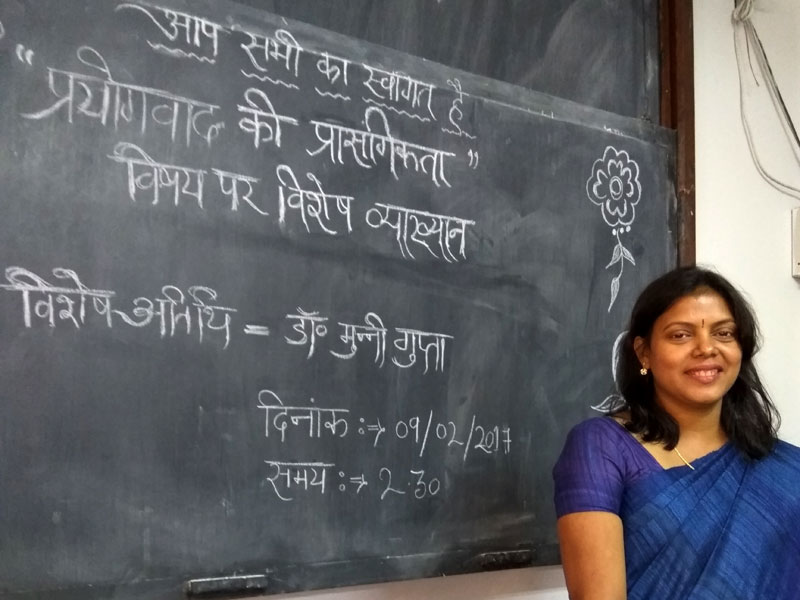 आप सभी का स्वागत है
"प्रयोगवाद की प्रासंगिकता"
विषय पर विशेष व्याख्यान
विशेष अतिथि = डॉ॰ मुन्नी गुप्ता
दिनांक :→ 09/02/2017
समय :→ 2.30